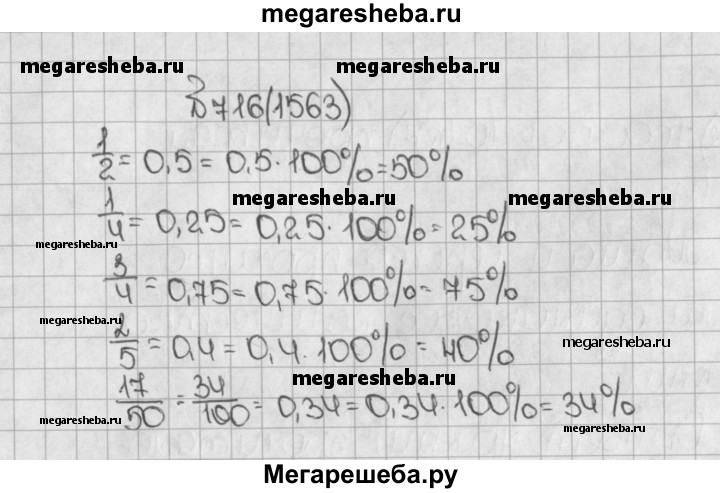 megaresheba.ru
megaresheba.ru megaresheba.ru
716(1563)
1/2 = 0,5 = 0,5 · 100% = 50%
megaresheba.ru megaresheba.ru
1/4 = 0,25 = 0,25 · 100% = 25%
megaresheba.ru
3/4 = 0,75 = 0,75 · 100% = 75%
megaresheba.ru
2/5 = 0,4 = 0,4 · 100% = 40%
megaresheba.ru
megaresheba.ru
17/50 = 34/100 = 0,34 = 0,34 · 100% = 34%
megaresheba.ru
megaresheba.ru
Мегарешеба.ру